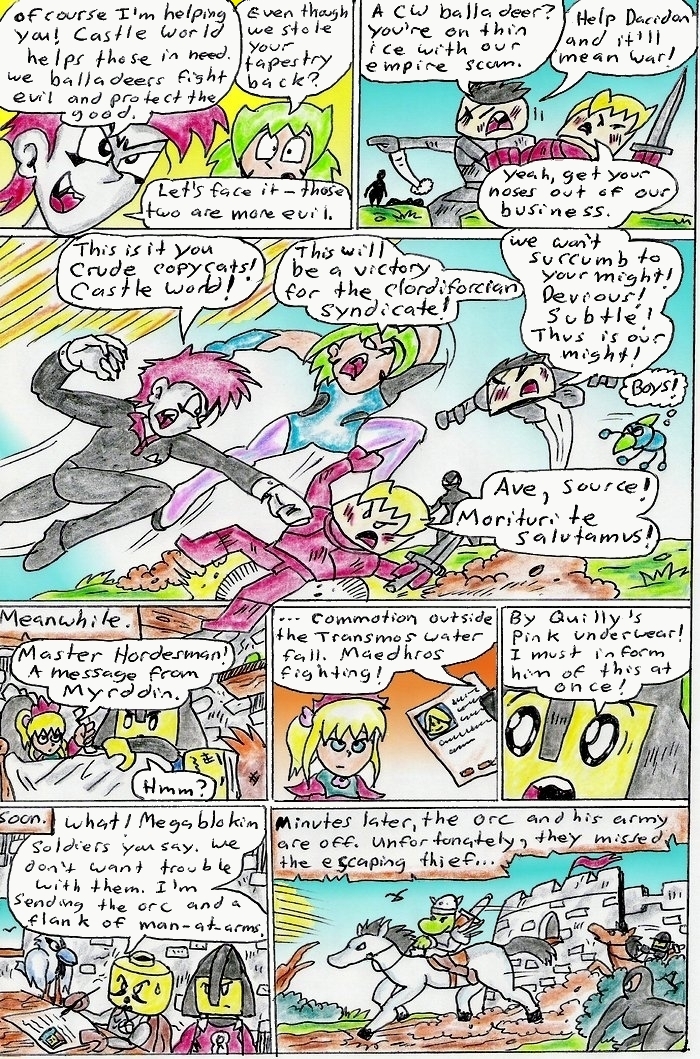 of course I'm helping
you! Castle World
helps those in need.
we balladeers fight
evil and protect the
good.
Even though
we stole
your
tapestry
back?
Let's face it - those
two are more evil.
A CW balladeer?
you're on thin
ice with our
empire scum.
Help Dacidon
and it'll
mean war!
yeah, get your
noses out of our
business.
This is it you
Crude copycats!
Castle World!
This will
be a victory
for the Clordiforcian
Syndicate!
we won't
succumb to
your might!
Devious!
Subtle!
Thus is our
might!
Boys!
Ave, Source!
Morituri te
Salutamus!
Meanwhile.
Master Hordesman!
A message from
Myrddin.
Hmm?
... commotion outside
the Transmos water
fall. Maedhros
fighting!
By Quilly's
Pink underwear!
I must inform
him of this at
once!
Soon.
What! Megablokim
Soldiers you say. we
don't want trouble
with them. I'm
sending the orc and a
flank of man-at-arms.
Minutes later, the orc and his army
are off. Unfortunately, they missed
the escaping thief...